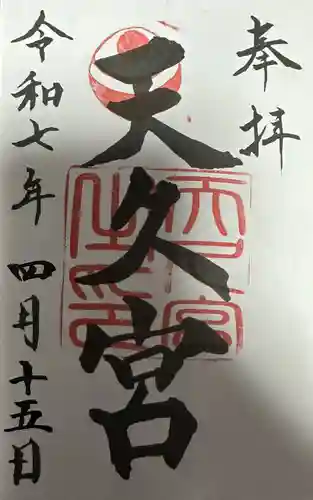 奉拝
天久宮
令和七年四月十五日